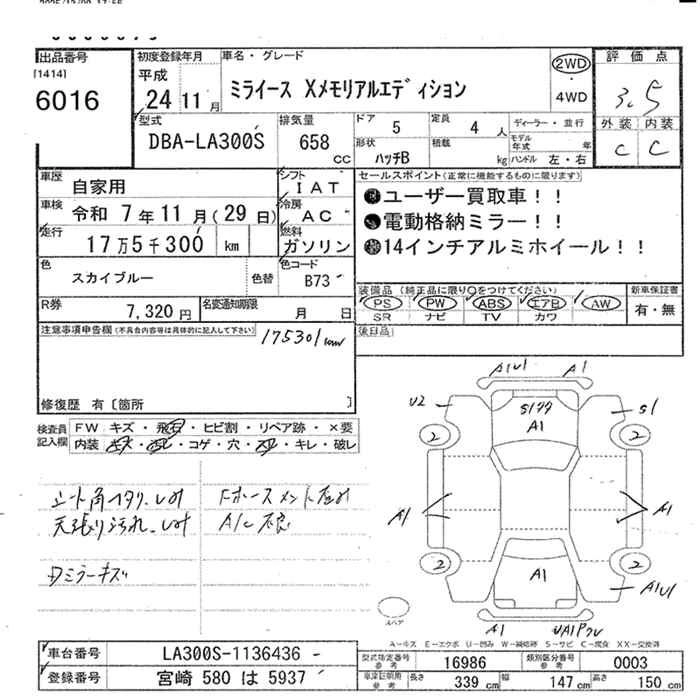 出品番号
[1414]
6016
初度登録年月
平成
24 11 月
車名・グレード
ミライース Xメモリアルエディション
2WD
4WD
評価点
3.5
外装 内装
C C
型式
DBA-LA300S
排気量
658
CC
ドア 5
定員 4 人
形状 ハッチB
積載 kg
ディーラー・並行
モデル年式 年
ハンドル 左・右
車歴
自家用
シフト
IAT
車検
令和 7年11月(29日)
冷房
AC
走行
17万5千300 km
燃料
ガソリン
色
スカイブルー
色替
色コード
B73
R券
7,320 円
名変通知期限
月 日
セールスポイント(正常に機能するものに限ります)
ユーザー買取車!!
電動格納ミラー!!
14インチアルミホイール!!
装備品(純正品に限り○をつけてください)
PS PW ABS エアB AW
SR ナビ TV カワ
新車保証書
有・無
後日品
注意事項申告欄(不具合内容等は具体的に記入して下さい)
175301km
修復歴 有〔箇所 〕
検査員記入欄
FW キズ・飛石・ヒビ割・リペア跡・×要
内装 キズ・汚レ・コゲ・穴・スレ・キレ・破レ
天張り汚れ
A/C不良
ミラーキズ
A1U1 A1
U2
S1
A1
S1
2 2
A1 A1
2 2
A1
A1U1
A1
スペア
A-キズ E-エクボ U-凹み W-補修跡 S-サビ C-腐食 XX-交換済
車台番号
LA300S-1136436
登録番号
宮崎 580 は 5937
型式指定番号 参考
16986
類別区分番号 参考
0003
車庫証明用 参考
長さ 339 cm
幅 147 cm
高さ 150 cm